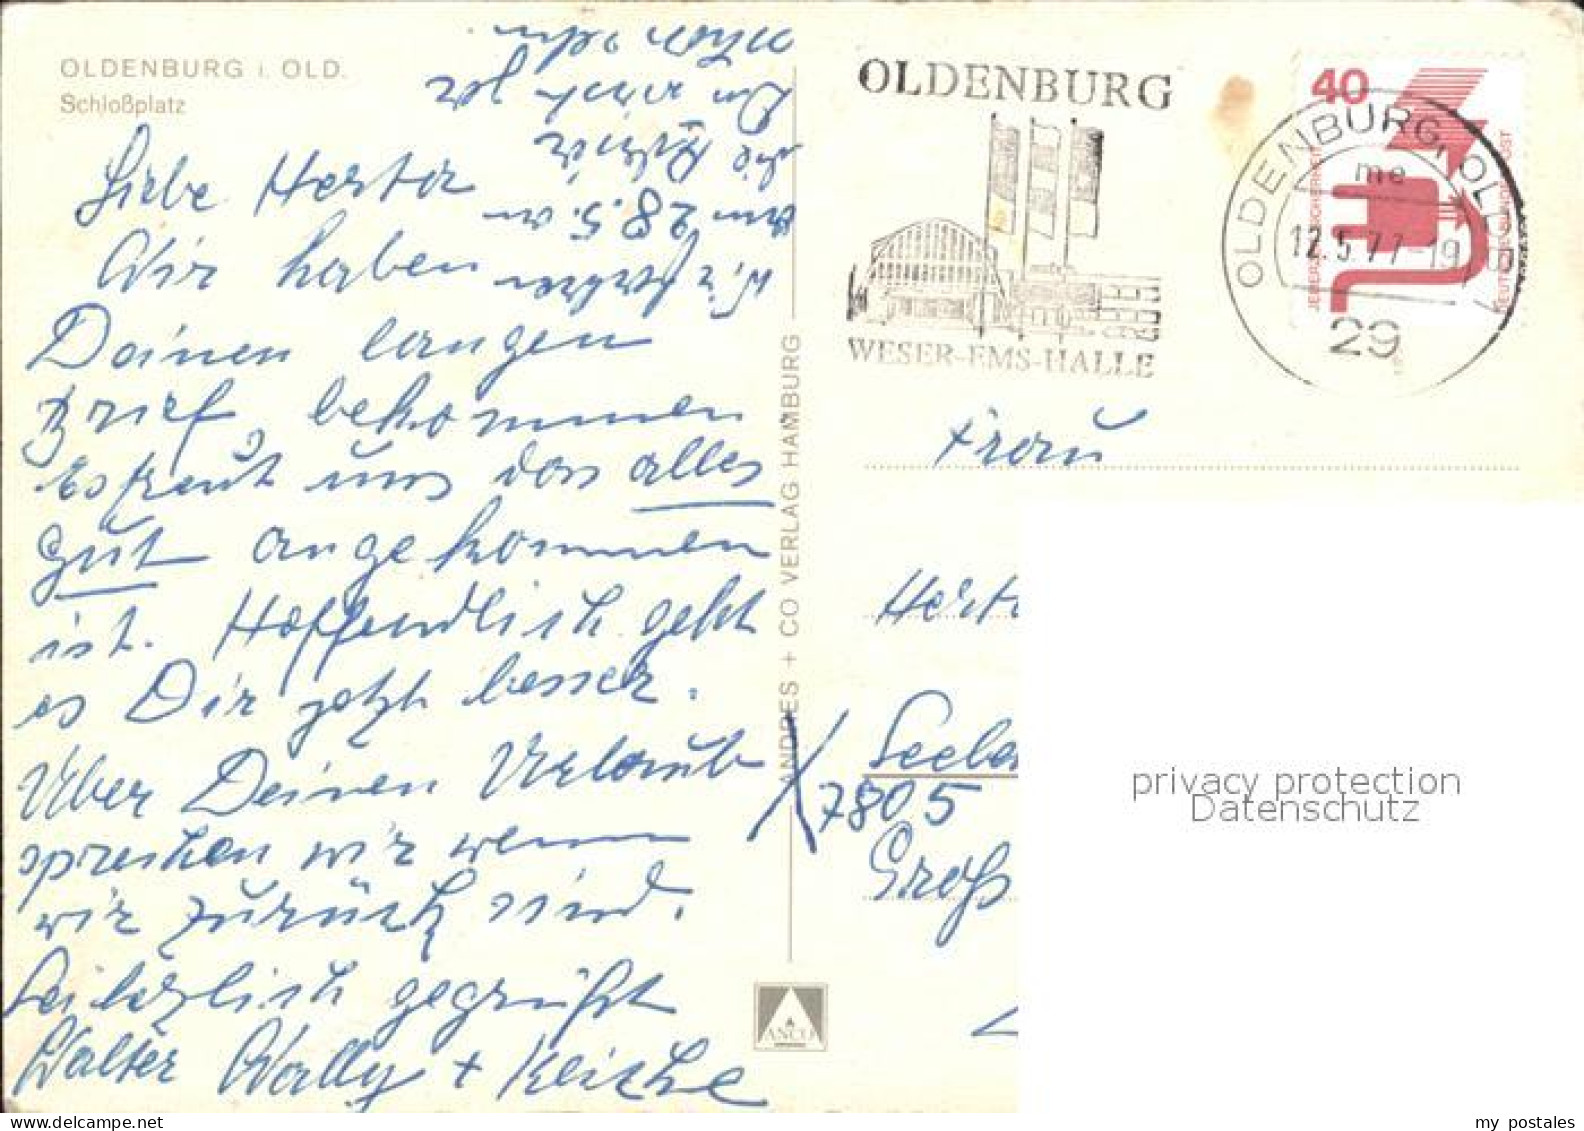 OLDENBURG i. OLD.
Schloßplatz
Liebe Herta
Wir haben
Deinen langen
Brief, bekommen
Es freut uns das alles
gut angekommen
ist. Hoffendlich geht
es Dir jetzt besser.
Über Deinen Urlaub
sprechen wir wenn
wir zurück sind.
Seid herzlich gegrüßt
Walter Wally +
Wir fahren
am 28.5. an
die
ANDRES + CO VERLAG HAMBURG
ANCO
OLDENBURG
WESER-EMS-HALLE
40
JEDERZEIT SICHERHEIT
DEUTSCHE BUNDESPOST
OLDENBURG, OLDB
me
12.5.77-19
29
Frau
Herta
7805
Groß
privacy protection
Datenschutz
my postales